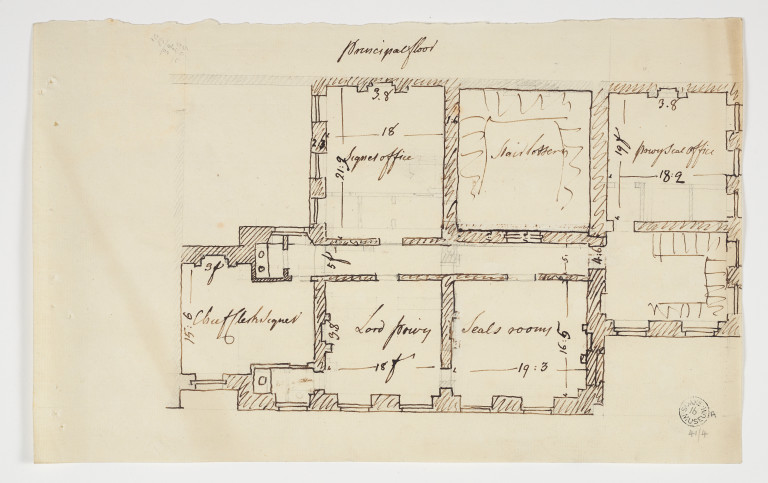 Principal floor
3.8
18
Signet office
21:9
3.8
19f
Privy Seal office
18:2
5f
4:6
9f
15:6
Chief Clerk Signet
3.8
Lord Privy
18f
Seals rooms
19:3
16:9
41/4